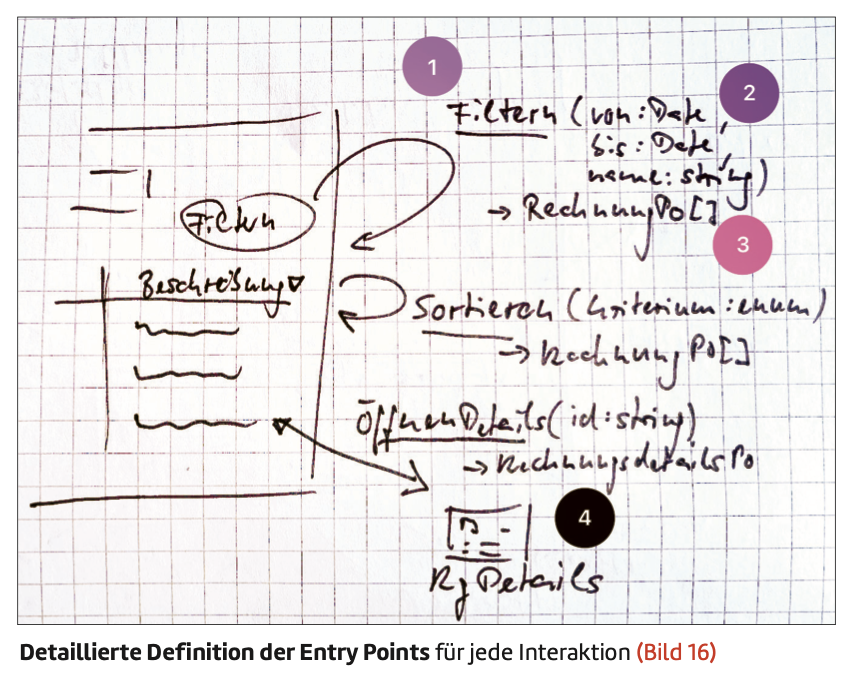 1
2
Filtern (von: Date,
bis: Date,
name: string)
→ RechnungPo[]
3
Filtern
Beschreibung ▽
Sortieren (kriterium: enum)
→ RechnungPo[]
ÖffnenDetails(id: string)
→ RechnungsdetailsPo
4
Rg Details
Detaillierte Definition der Entry Points für jede Interaktion (Bild 16)